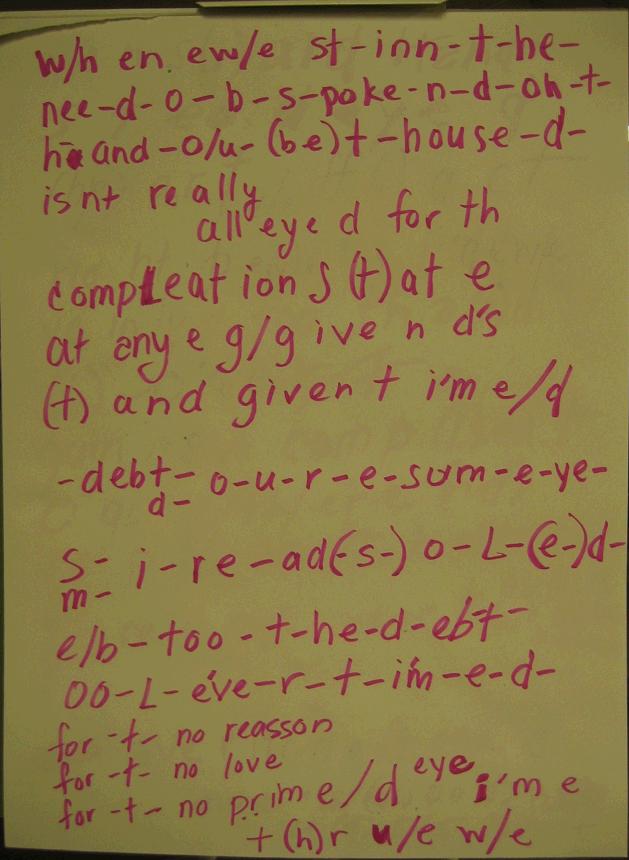 w/h en ew/e st-inn-t-he-
nee-d-o-b-s-poke-n-d-oh-t-
ha and-o/u-(be)t-house-d-
isnt really
all eye d for th
compleation s (t) at e
at any e g/g ive n d's
(t) and given t i'm e/d
-debt- o-u-r-e-sum-e-ye-
d-
s- i-re-ad(-s-) o-L-(e-)d-
m-
e/b-too-t-he-d-ebt-
oo-L-e've-r-t-i'm-e-d-
for -t- no reasson
for -t- no love
for -t- no prim e/d eye i'm e
t (h) r u/e w/e